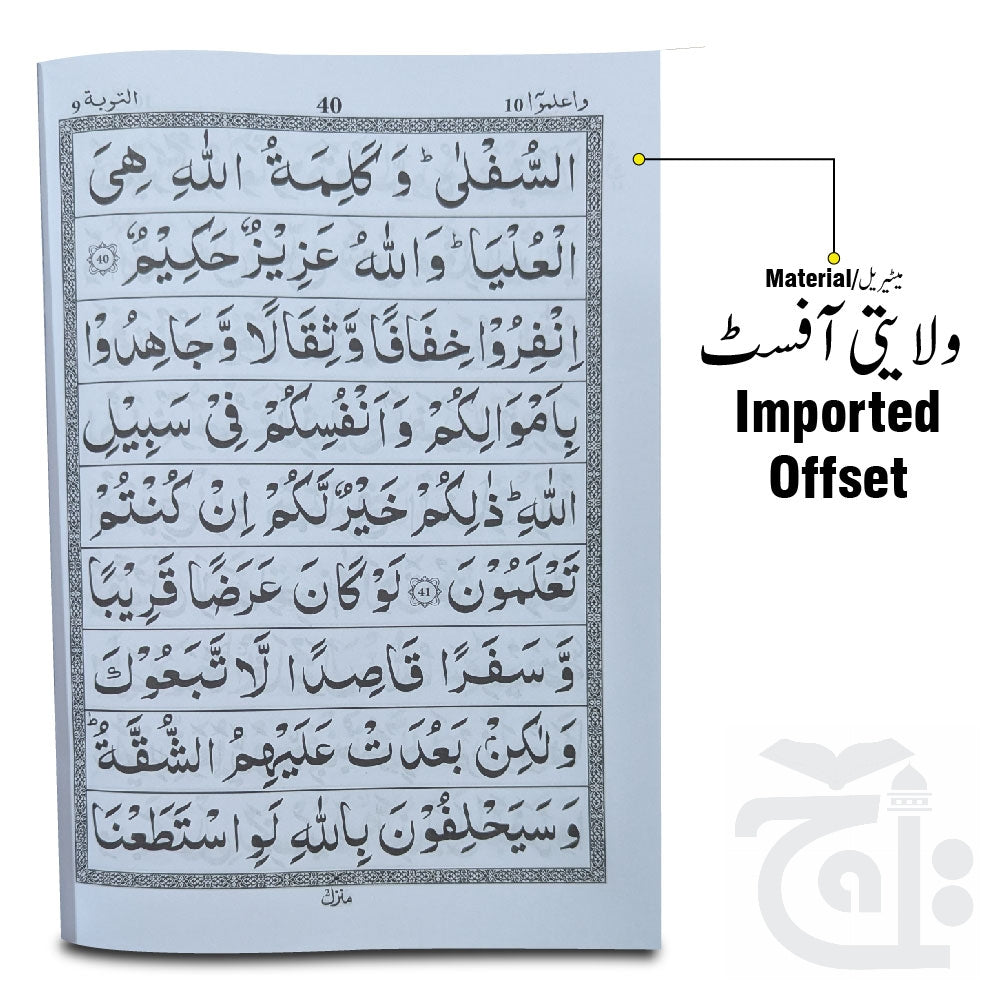 واعلموٓا 10 40 التوبة 9
السُّفْلٰىؕ وَ كَلِمَةُ اللّٰهِ هِیَ
الْعُلْیَاؕ وَ اللّٰهُ عَزِیْزٌ حَكِیْمٌ 40
اِنْفِرُوْا خِفَافًا وَّ ثِقَالًا وَّ جَاهِدُوْا
بِاَمْوَالِكُمْ وَ اَنْفُسِكُمْ فِیْ سَبِیْلِ
اللّٰهِؕ ذٰلِكُمْ خَیْرٌ لَّكُمْ اِنْ كُنْتُمْ
تَعْلَمُوْنَ 41 لَوْ كَانَ عَرَضًا قَرِیْبًا
وَّ سَفَرًا قَاصِدًا لَّا تَّبَعُوْكَ
وَ لٰكِنْۢ بَعُدَتْ عَلَیْهِمُ الشُّقَّةُؕ
وَ سَیَحْلِفُوْنَ بِاللّٰهِ لَوِ اسْتَطَعْنَا
منزل
Material/میٹیریل
ولایتی آفسٹ
Imported
Offset
تاج